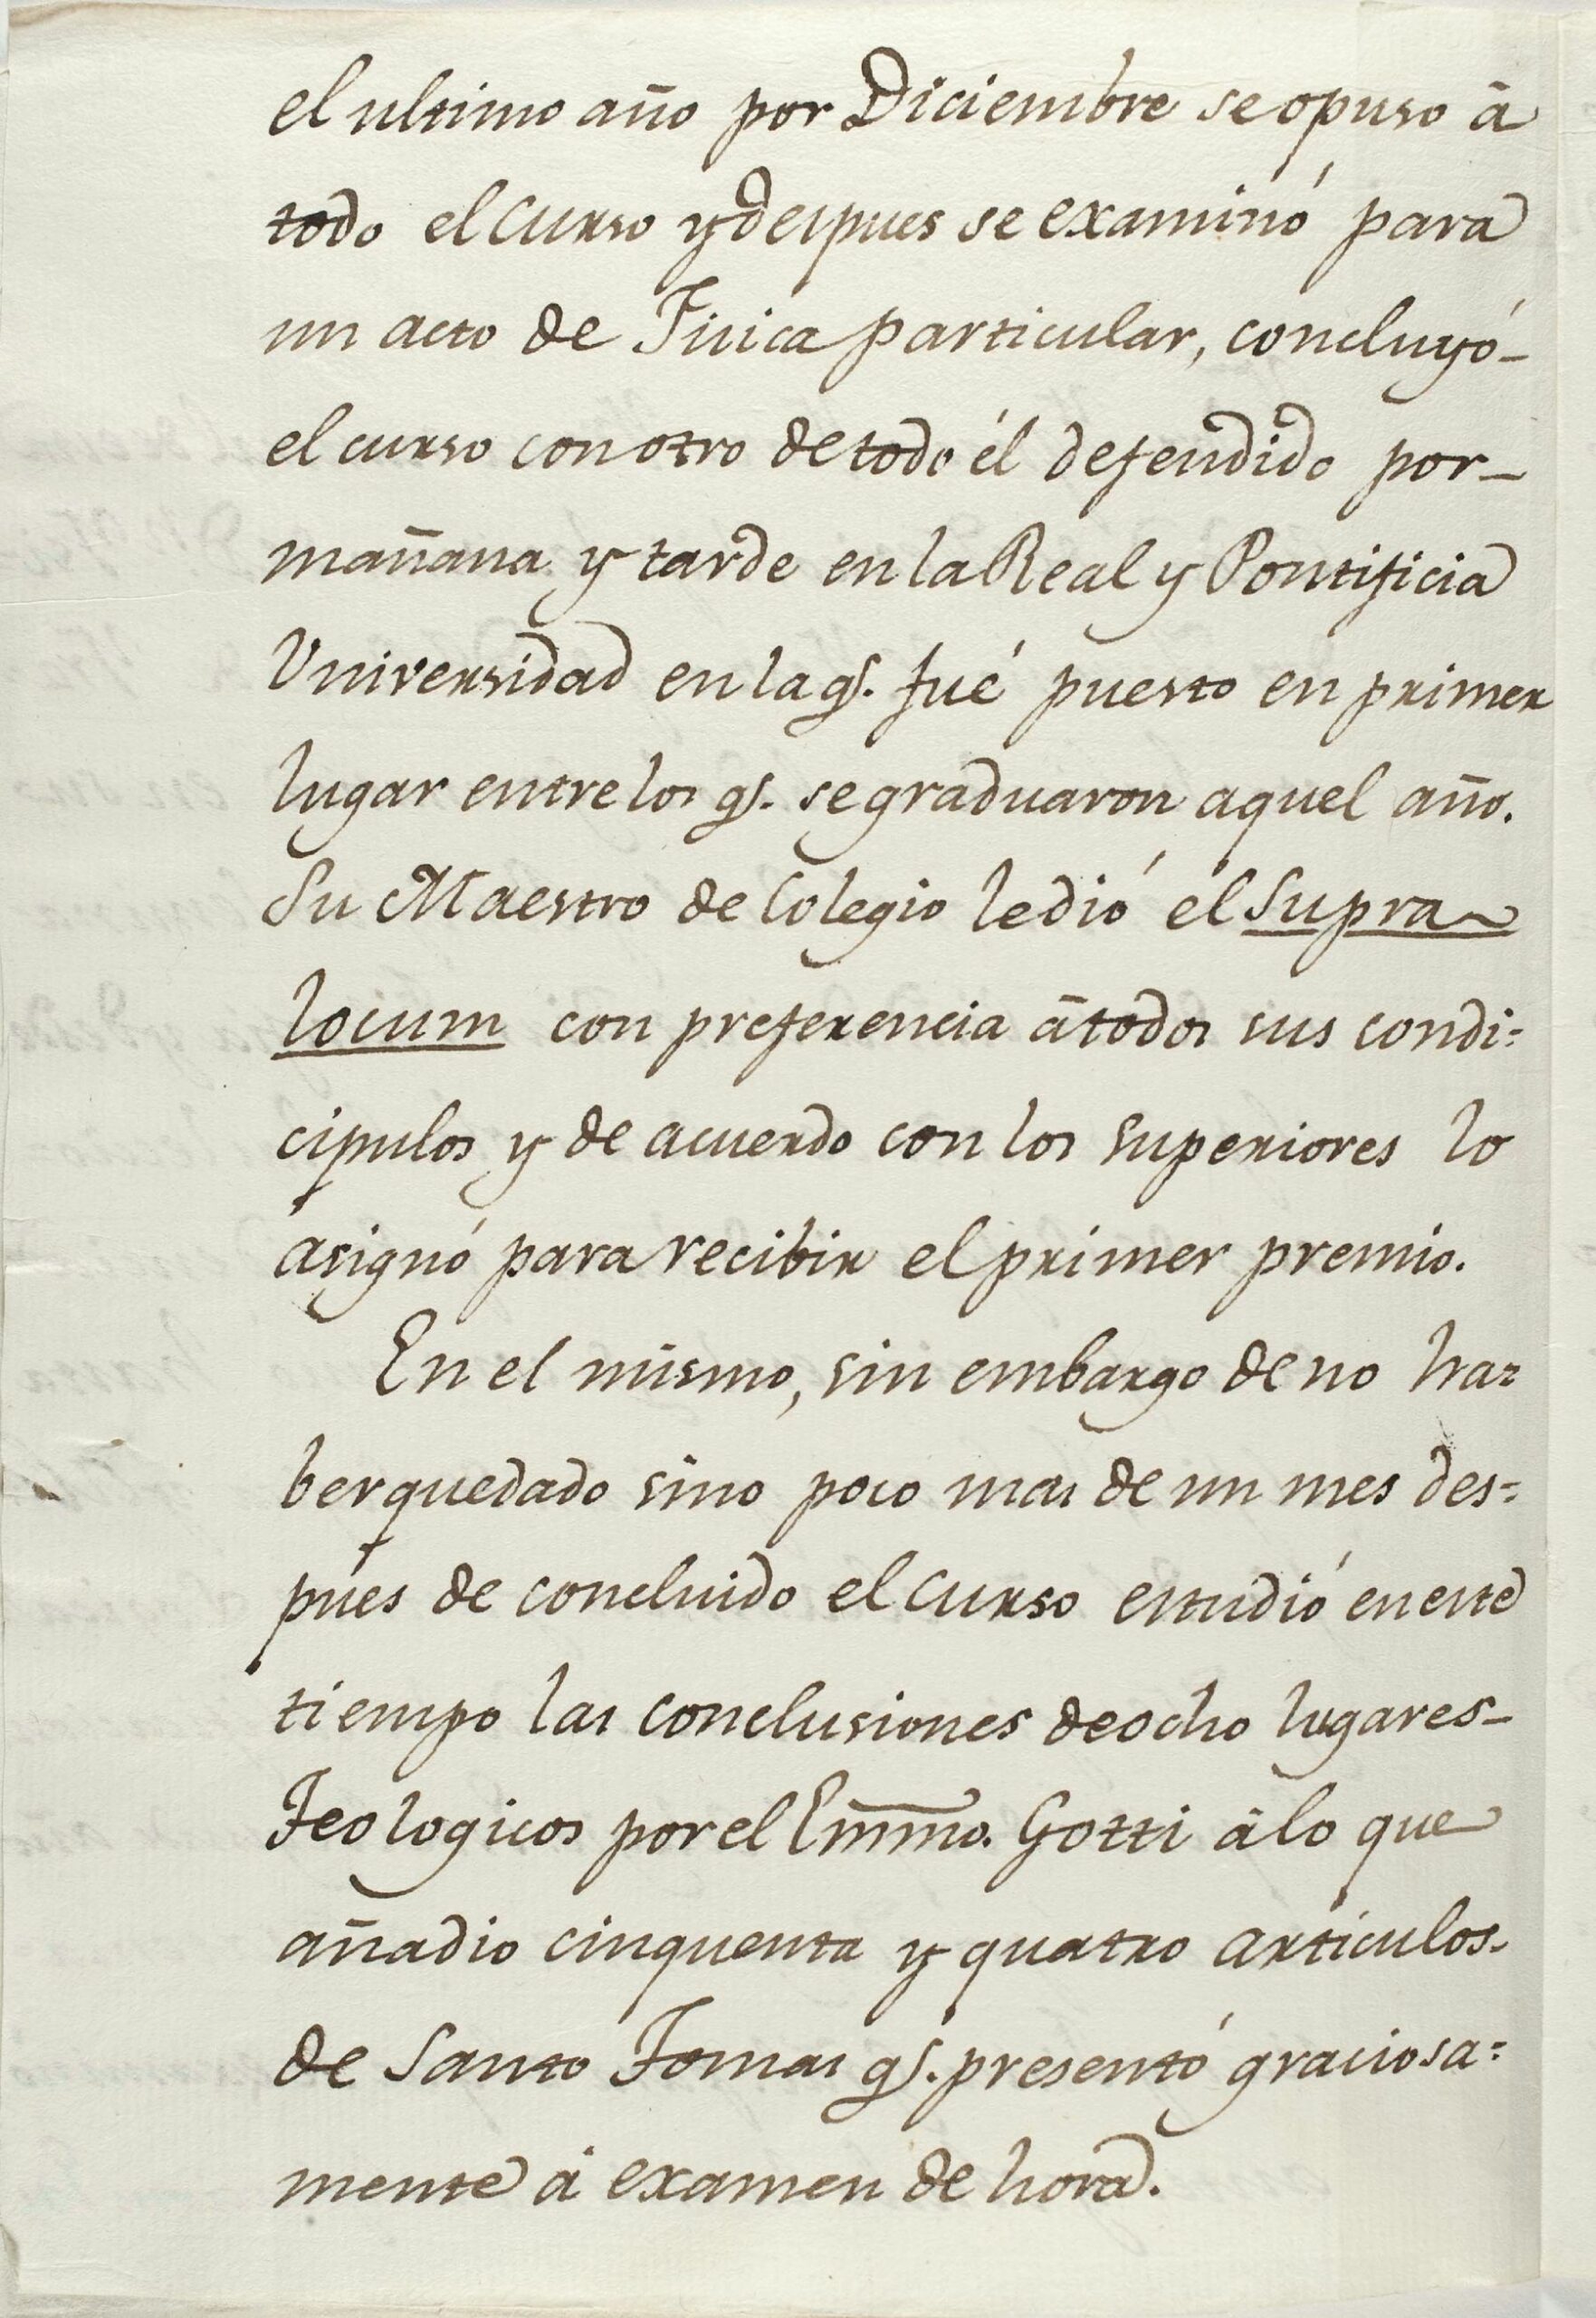 el ultimo año por Diciembre se opuso â
todo el curso y despues se examinó para
un acto de Fisica particular, concluyó-
el curso con otro de todo él defendido por-
mañana y tarde en la Real y Pontificia
Universidad en la qͤ. fué puesto en primer
lugar entre los qͤ. se graduaron aquel año.
Su Maestro de Colegio le dió el Supra
locum con preferencia â todos sus condi=
cipulos y de acuerdo con los superiores lo
asignó para recibir el primer premio.
En el mismo, sin embargo de no ha=
ber quedado sino poco mas de un mes des=
pues de concluido el curso estudió en este
tiempo las conclusiones de ocho lugares-
Teologicos por el Emmo. Gotti â lo que
añadio cinquenta y quatro articulos-
de Santo Tomas qͤ. presentó graciosa=
mente á examen de hora.